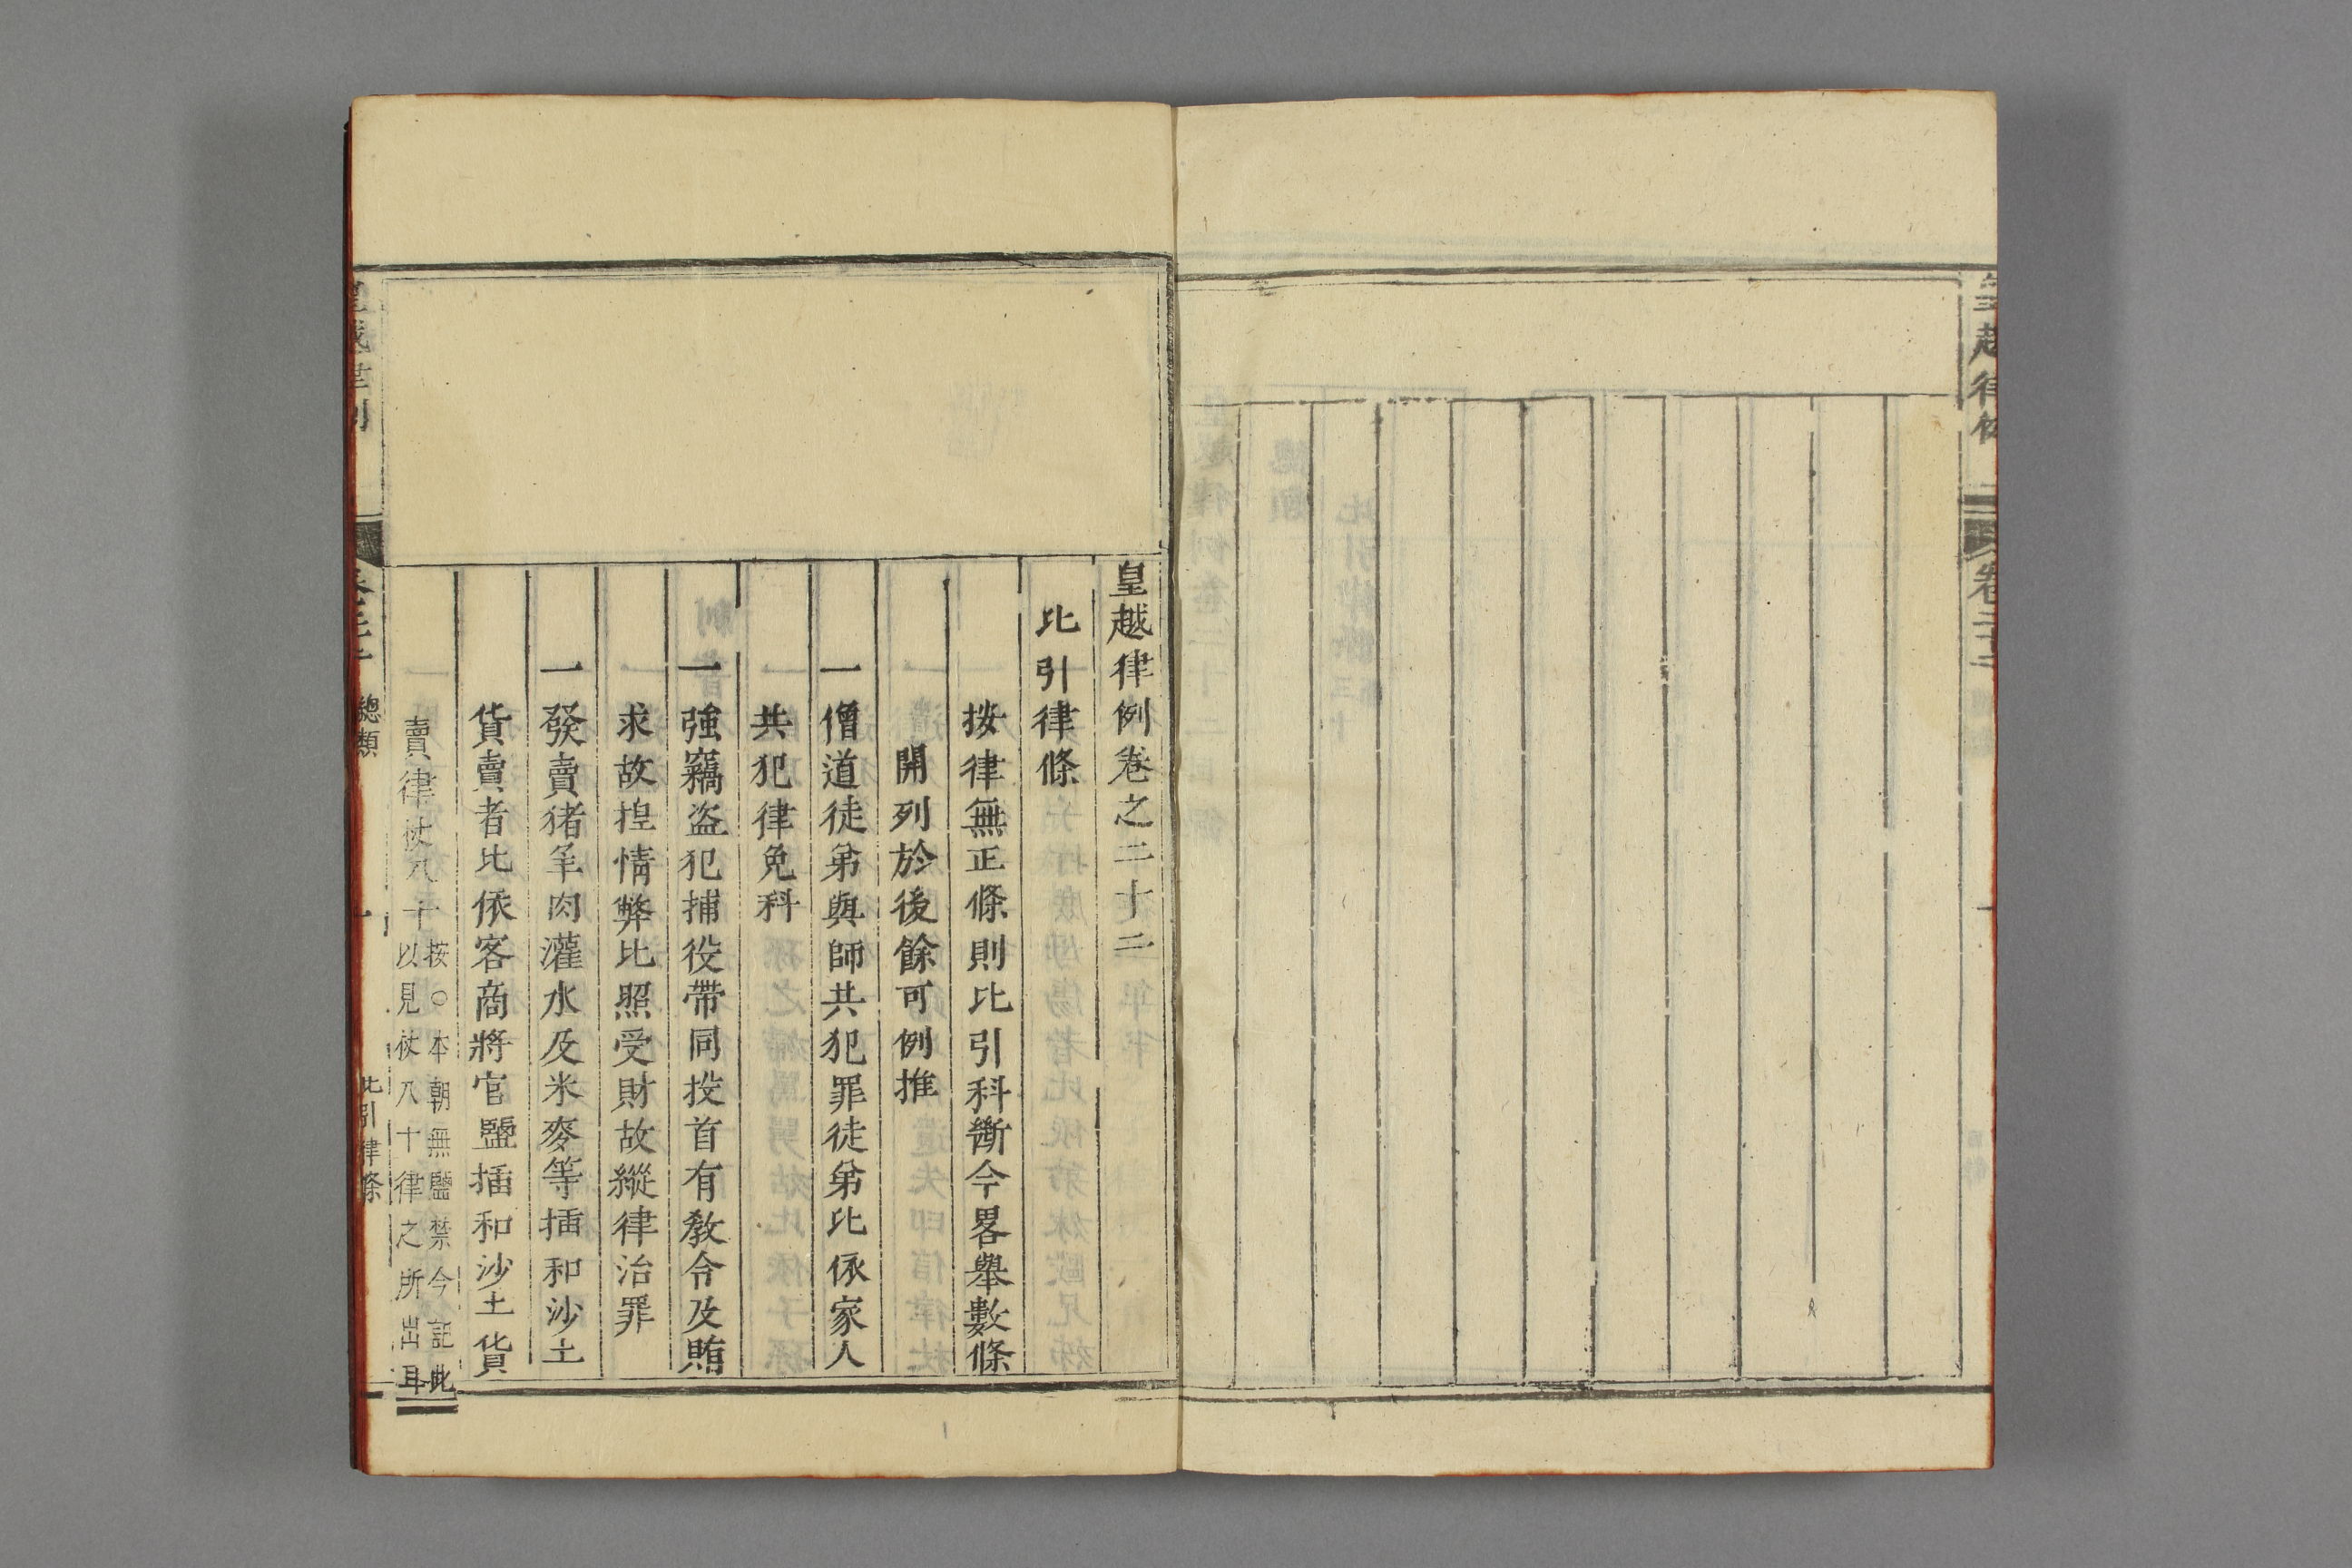 皇越律例 卷二十二
皇越律例卷之二十二
比引律條
按律無正條則比引科斷今畧舉數條
開列於後餘可例推
一僧道徒弟與師共犯罪徒弟比依家人
共犯律免科
一強竊盗犯捕役帶同投首有教令及賄
求故揑情弊比照受財故縱律治罪
一發賣猪羊肉灌水及米麥等插和沙土
貨賣者比依客商將官鹽插和沙土貨
賣律杖八十按○本朝無鹽禁今註此
以見杖八十律之所出耳
總類 一 比引律條